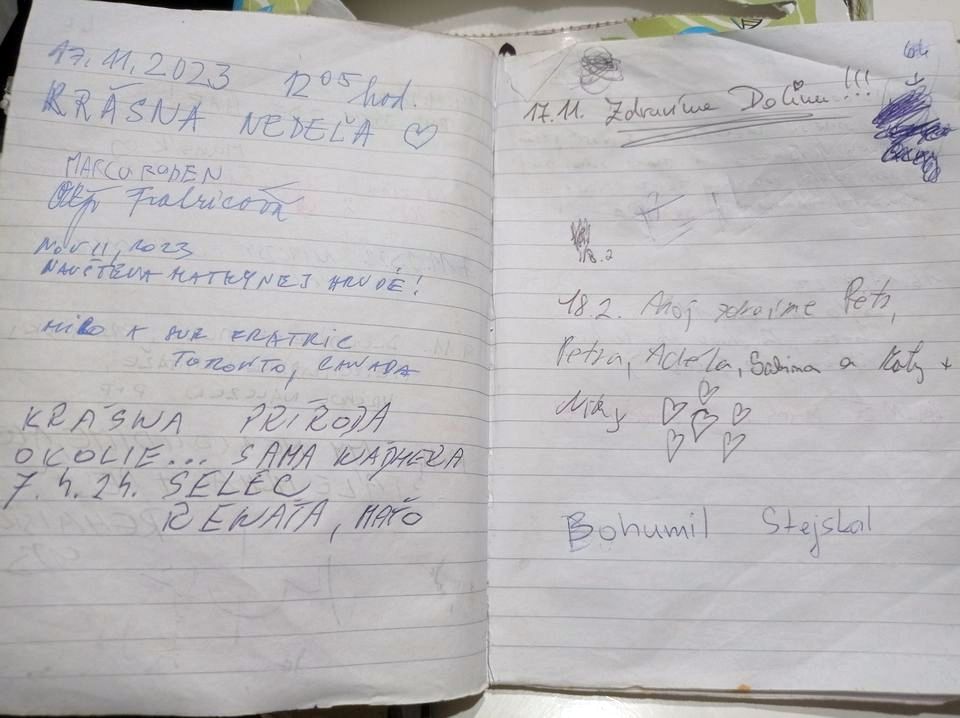 17.11.2023 12 05 hod.
KRÁSNA NEDEĽA
MARCO RODEN
Nov 11, 2023
NAVŠTEVA MATKYNEJ HRUDĚ!
TORONTO, CANADA
KRÁSNA PRÍRODA
OKOLIE... SAMA NÁDHERA
7.4.24. SELEC
RENATA, MAŤO
17.11. Zdravíme Dolinu!!!
18.2
18.2. Ahoj zdravíme Petr,
Petra, Adéla, Sabina a Katy +
Niky
Bohumil Stejskal